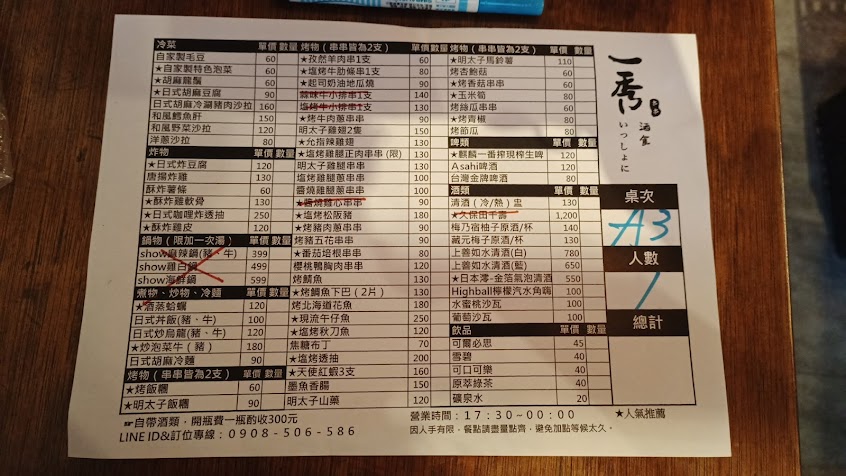 冷菜 單價 數量
自家製毛豆 60
★自家製特色泡菜 60
★胡麻龍鬚 60
★日式胡麻豆腐 60
日式胡麻冷涮豬肉沙拉 160
和風鱈魚肝 150
和風野菜沙拉 120
洋蔥沙拉 80
炸物 單價 數量
★日式炸豆腐 120
唐揚炸雞 130
酥炸薯條 60
★酥炸雞軟骨 130
★日式咖哩炸透抽 250
★酥炸雞皮 120
鍋物(限加一次湯) 單價 數量
show麻辣鍋(豬、牛) 399
show雞白鍋 499
show海鮮鍋 599
煮物、炒物、冷麵 單價 數量
★酒蒸蛤蠣 120
日式丼飯(豬、牛) 100
日式炒烏龍(豬、牛) 120
★炒泡菜牛(豬) 180
日式胡麻冷麵 90
烤物(串串皆為2支) 單價 數量
★烤飯糰 60
★明太子飯糰 90
烤物(串串皆為2支) 單價 數量
★孜然羊肉串1支 60
★塩烤牛肋條串1支 80
★起司奶油地瓜燒 90
蒜味牛小排串1支 140
塩烤牛小排串1支 130
★烤牛肉蔥串串 130
明太子雞翅2隻 150
★允指辣雞翅 130
★塩烤雞腿正肉串串(限) 130
明太子雞腿串串 130
塩烤雞腿蔥串串 130
醬燒雞腿蔥串串 130
★醬燒雞心串串 90
★塩烤松阪豬 180
烤豬五花串串 90
★番茄培根串串 90
櫻桃鴨胸肉串串 120
烤鯖魚 130
★烤鯛魚下巴(2片) 130
烤北海道花魚 180
★現流午仔魚 250
★塩烤秋刀魚 120
焦糖布丁 70
★塩烤透抽 200
★天使紅蝦3支 160
墨魚香腸 150
明太子山藥 120
烤物(串串皆為2支) 單價 數量
★明太子馬鈴薯 110
烤杏鮑菇 60
★烤香菇串串 80
★玉米筍 80
烤絲瓜串串 80
★烤青椒 80
烤節瓜 80
啤類 單價 數量
★麒麟一番搾現榨生啤 120
Asahi啤酒 120
台灣金牌啤酒 80
酒類 單價 數量
清酒(冷/熱)盅 130
★久保田千壽 1,200
梅乃宿柚子原酒/杯 140
藏元梅子原酒/杯 130
上善如水清酒(白) 780
上善如水清酒(藍) 650
★日本澪-金箔氣泡清酒 550
Highball檸檬汽水角嗨 100
水蜜桃沙瓦 100
葡萄沙瓦 100
飲品 單價 數量
可爾必思 45
雪碧 40
可口可樂 40
原萃綠茶 40
礦泉水 20
一秀
酒食
いっしょに
桌次
A3
人數
1
總計
☛自帶酒類,開瓶費一瓶酌收300元
LINE ID&訂位專線:0908-506-586
營業時間:17:30~00:00
因人手有限,餐點請盡量點齊,避免加點等候太久。
★人氣推薦